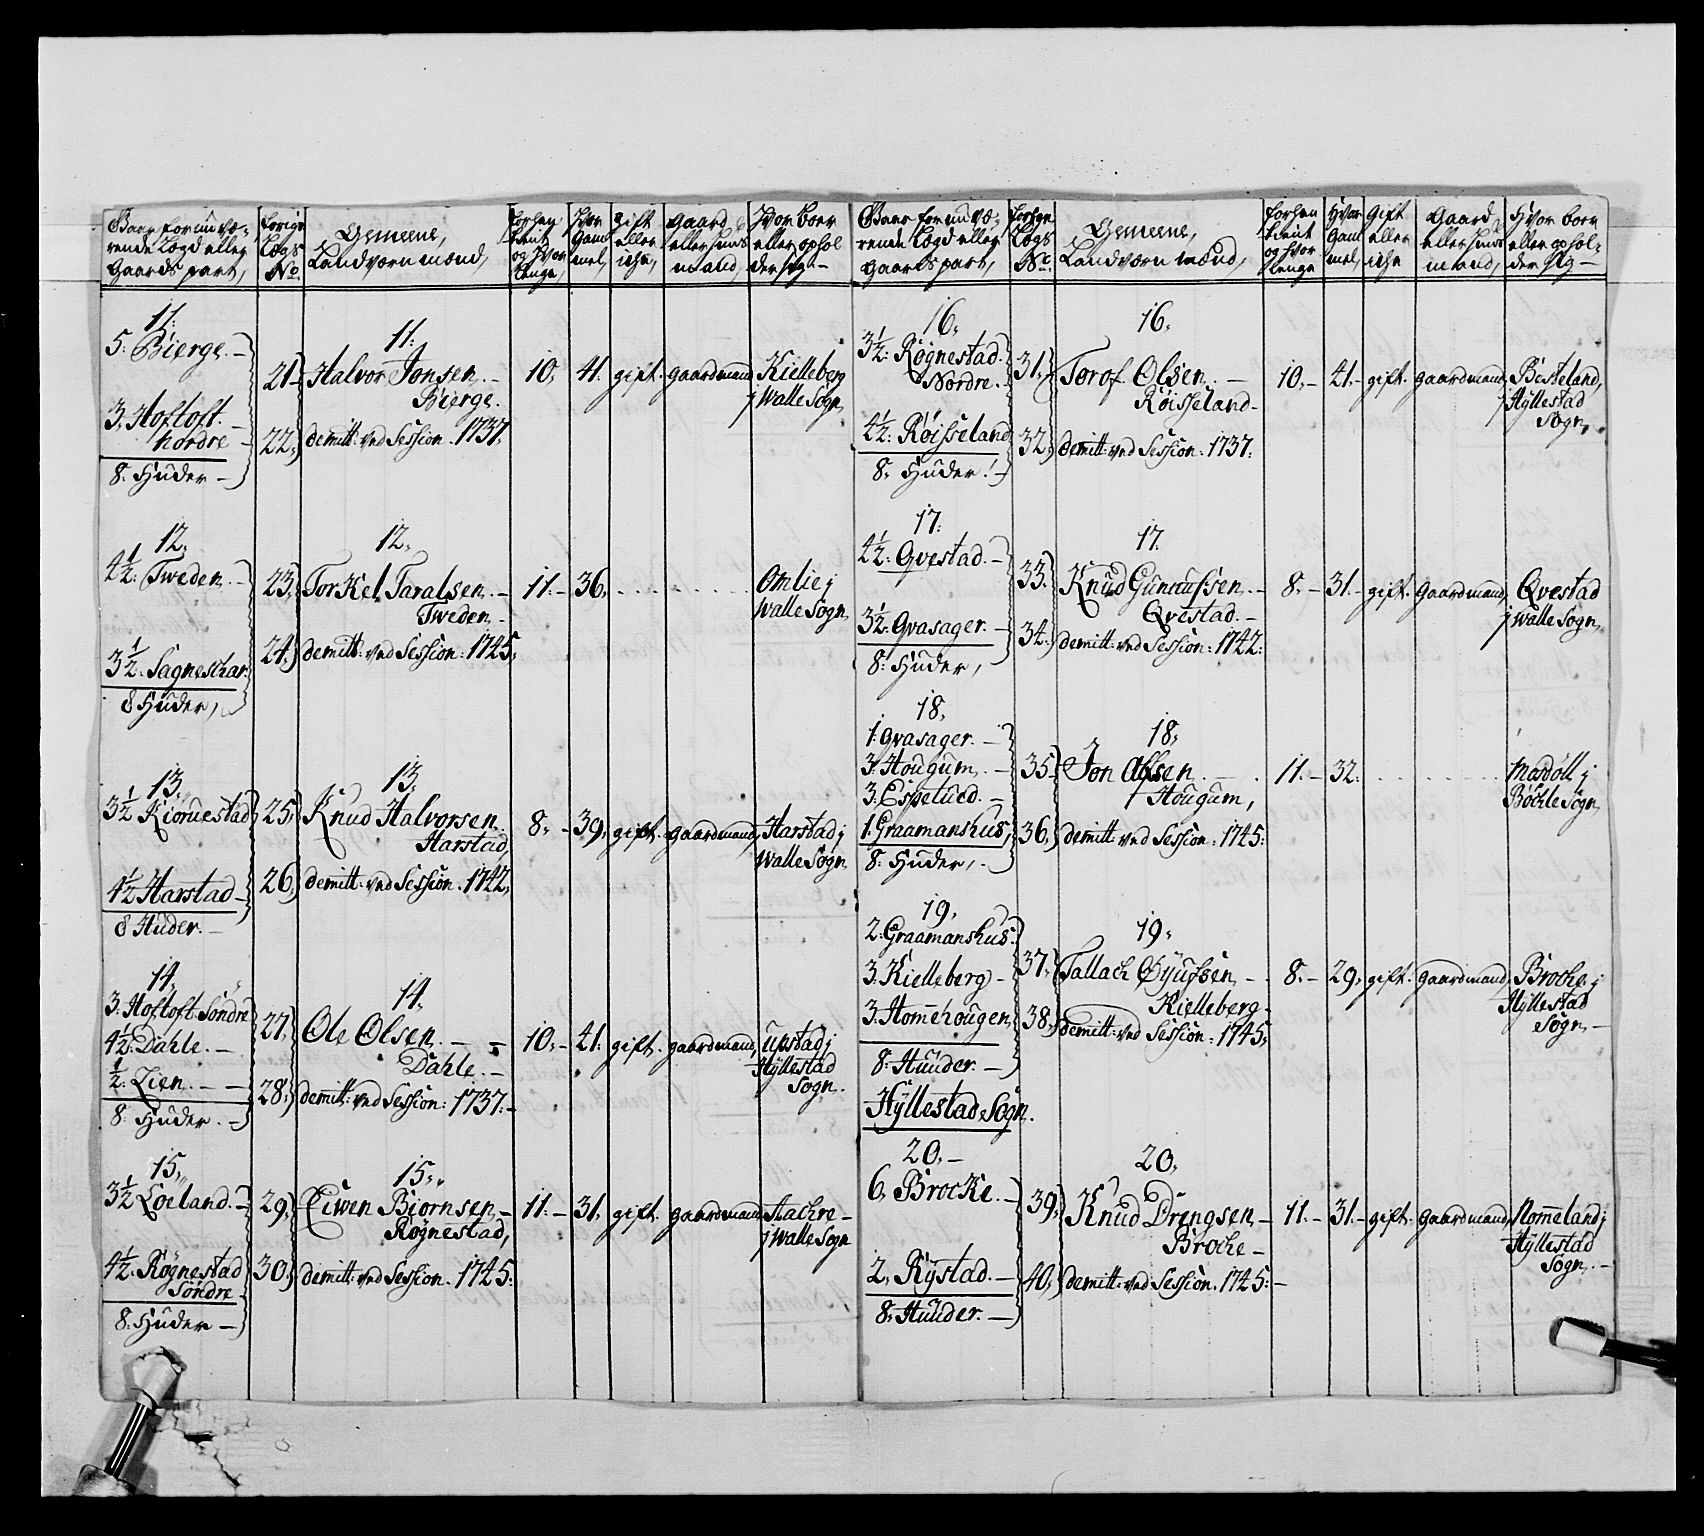 Gaardspart,
Lægs
No.
Gemeene,
Landværn mænd,
tient
og hvor
længe,
Hvor
Gam
mel,
gift
eller
ichе,
Gaard
eller huus
mand,
Hvor boer
eller ophol
der sig —
11.
5. Bierge. —
3. Hoftoft. —
nordre —
8. Huder —
21.
22.
11.
Halvor Jonsen. —
Bierge.
demitt: ved Session. 1737.
10. 41. gift. gaardmand Kielleberg
j Walle Sogn
12.
4½. Tweden. —
3½. Sagneschar.
8 Huder,
23.
24.
12.
Torkel Taralsen. —
Tweden —
demitt: ved Session: 1745.
11. — 36. . . . . . . . Omlie j
Walle Sogn
13.
3½ Kiøruestad
4½ Harstad —
8 Huder. —
25.
26.
13.
Knud Halvorsen.
Harstad,
demitt: ved Session. 1742.
8. — 39. gift. gaardmand, Harstad j
Walle Sogn
14.
3. Hoftoft. Søndre
4½. Dahle. —
½. Lien. — —
8. Huder. —
27.
28.
14.
Ole Olsen. — —
Dahle. —
demitt: ved Session: 1737. —
10. — 41. gift. gaardmand, upstad j
Hyllestad
Sogn.
15.
3½ Løeland. —
4½. Røgnestad
Søndre —
8. Huder —
29.
30.
15.
Eiwen Biørnsen. —
Røgnestad,
demitt: ved Session. 1745:
11. — 31. gift. gaardmand Aachre —
j Walle Sogn
Gaardspart,
Lægs
No.
Gemeene,
Landværn mænd,
tient
og hvor
længe
Hvor
Gam
mel,
Gift
eller
iche
Gaard
eller huus
mand,
Hvor boer
eller ophol-
der sig —
16.
3½. Røgnestad.
Nordre. —
4½. Røisseland
8. Huder. —
31.
32.
16.
Torof Olsen. —
Røisseland —
demitt: ved Session. 1737:
10. — 41. — gift. gaardmand, Besteland,
j Hyllestad
Sogn,
17.
4½. Qvestad. —
3½. Qvasager. —
8. Huder,
33.
34.
17.
Knud Gunnufsen. —
Qvestad. —
demitt: ved Session: 1742:
8. — 31. — gift. Gaardmand, Qvestad
j Walle Sogn,
18.
1. Qvasager. —
3. Hougum. —
3. Espetued. —
1. Graamanshus,
8. Huder, —
35.
36.
18.
Jon Olfsen. —
Hougum,
demitt: ved Session: 1745:
11. — 32. . . . . . . . Mosdøll j
Bøchle Sogn,
19.
2. Graamanshus.
3. Kielleberg —
3. Homehougen,
8. Huuder. —
37.
38.
19.
Tallach Øyufsen —
Kielleberg —
demitt: ved Session: 1745.
8. — 29. gift. gaardmand, Broche. j
Hyllestad
Sogn. —
Hyllestad Sogn.
20. —
6. Brocke. —
2. Rystad. —
8. Huuder. —
39.
40.
20.
Knud Drengsen —
Broche —
demitt: ved Session. 1745: —
11. — 31. — gift. Gaardmand, Nomeland j
Hyllestad
Sogn. —